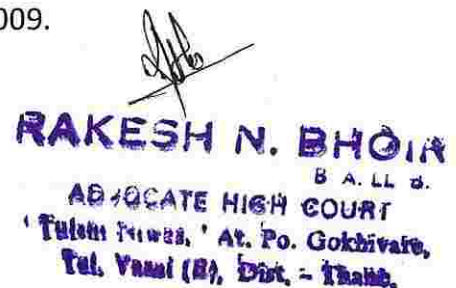 009.
RAKESH N. BHOIR
B A. LL B.
ADVOCATE HIGH COURT
' Tulshi Niwas, ' At. Po. Gokhivare,
Tal. Vasai (E), Dist. - Thane.